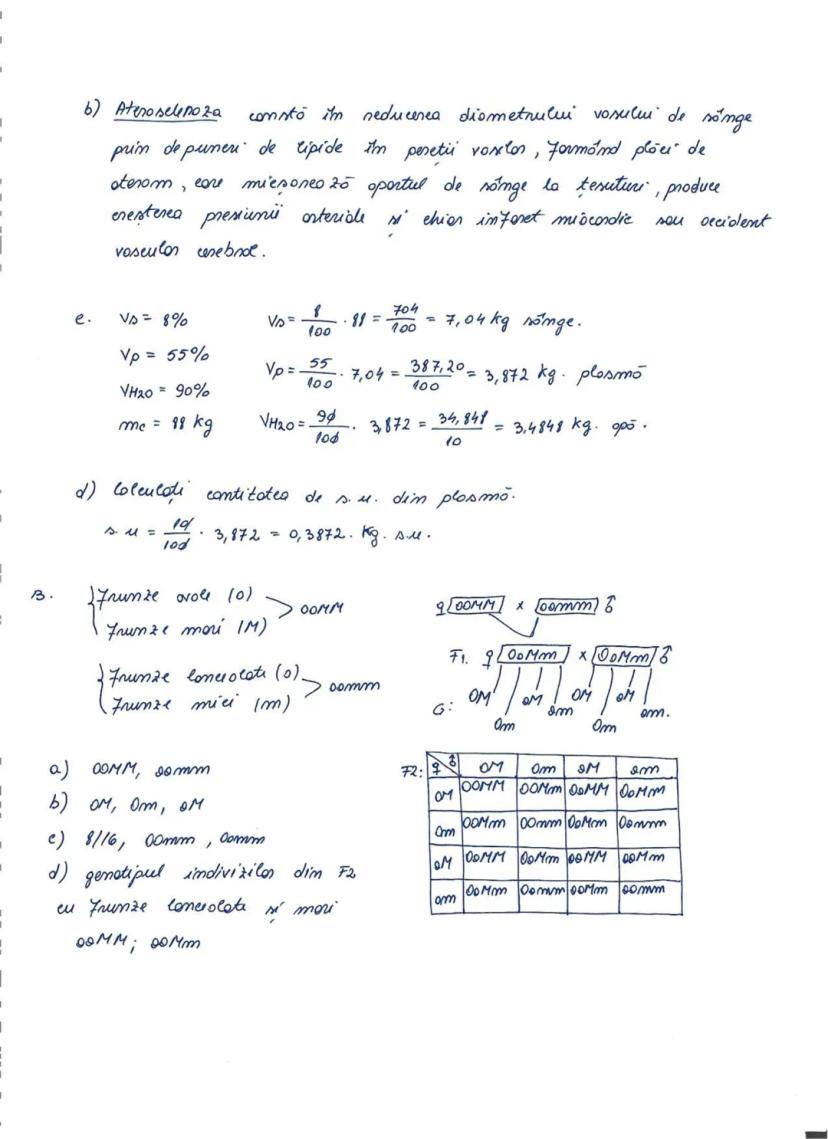 b) Ateroscleroza constă în reducerea diametrului vasului de sânge
prin depuneri de lipide în pereții vaselor, formând plăci de
aterom, care micșorează aportul de sânge la țesuturi, produce
creșterea presiunii arteriale și chiar infarct miocardic sau accident
vascular cerebral.
c. Vs = 8% Vs = 8/100 · 88 = 704/100 = 7,04 kg sânge.
Vp = 55% Vp = 55/100 · 7,04 = 387,20/100 = 3,872 kg. plasmă
VH2O = 90%
mc = 88 kg VH2O = 90/100 · 3,872 = 34,848/10 = 3,4848 kg. apă.
d) Calculați cantitatea de s.u. din plasmă.
s.u = 10/100 · 3,872 = 0,3872. Kg. s.u.
B. Frunze ovale (O) > OOMM
Frunze mari (M)
Frunze lanceolate (o) > oomm
Frunze mici (m)
♀ OOMM x oomm ♂
F1. ♀ OoMm x OoMm ♂
G: OM Om oM om OM Om oM om.
a) OOMM, oomm
b) OM, Om, oM
c) 8/16, OOmm, Oomm
d) genotipul indivizilor din F2
cu frunze lanceolate și mari
ooMM; ooMm
F2: ♀ ♂ OM Om oM om
OM OOMM OOMm OoMM OoMm
Om OOMm OOmm OoMm Oomm
oM OoMM OoMm ooMM ooMm
om OoMm Oomm ooMm oomm